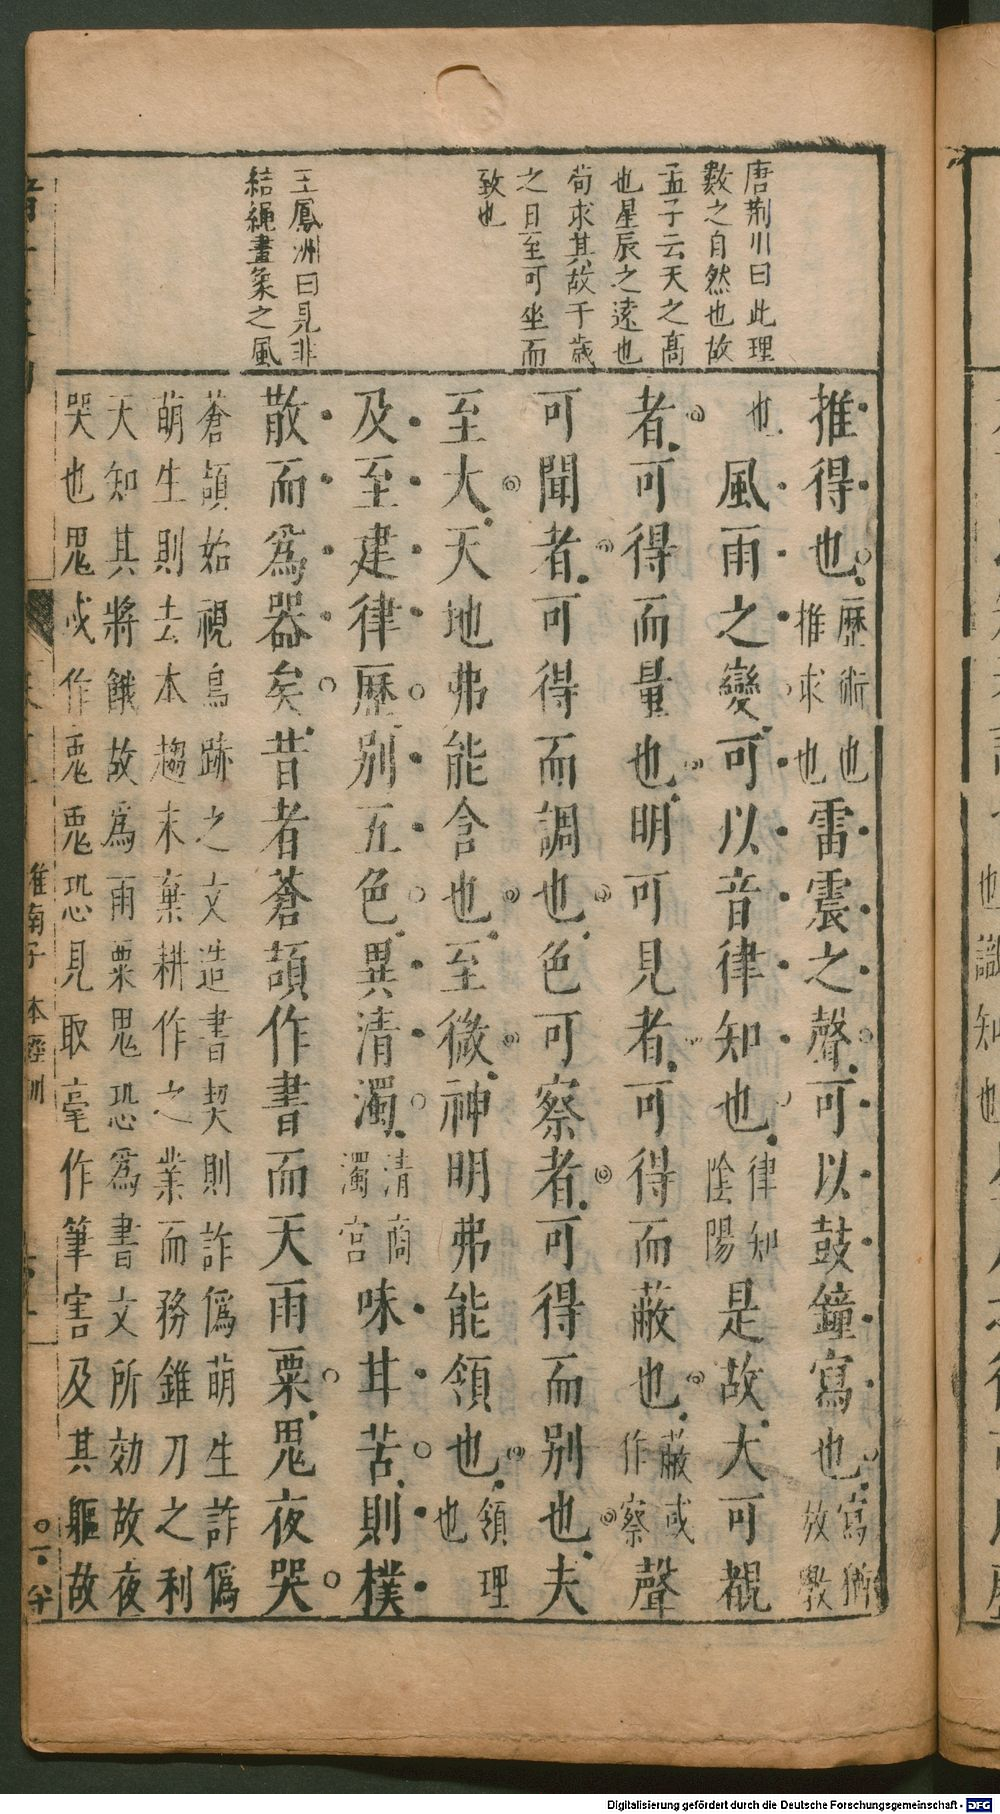 唐荆川曰此理
數之自然也故
孟子云天之高
也星辰之遠也
苟求其故千歲
之日至可坐而
致也
王鳳洲曰見非
結繩畫象之風
推得也曆術也推求也雷震之聲可以鼓鐘寫也寫猶放斆
也風雨之變可以音律知也律知陰陽是故大可覩
者可得而量也明可見者可得而蔽也蔽或作察聲
可聞者可得而調也色可察者可得而別也夫
至大天地弗能含也至微神明弗能領也領理也
及至建律曆別五色異清濁清商濁宮味甘苦則樸
散而爲器矣昔者蒼頡作書而天雨粟鬼夜哭
蒼頡始視鳥跡之文造書契則詐僞萌生詐僞
萌生則去本趨末棄耕作之業而務錐刀之利
天知其將餓故爲雨粟鬼恐爲書文所効故夜
哭也鬼或作兎兎恐見取毫作筆害及其軀故
淮南子 本經訓
Digitalisierung gefördert durch die Deutsche Forschungsgemeinschaft - DFG